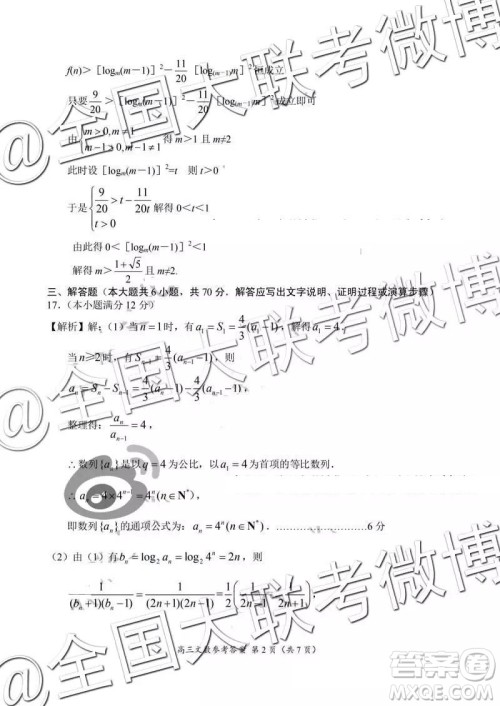 f(n)＞［logₘ(m－1)］²－11/20［log₍ₘ₋₁₎m］²恒成立
只要9/20＞［logₘ(m－1)］²－11/20［log₍ₘ₋₁₎m］²成立即可
由{m＞0,m≠1 m－1＞0,m－1≠1 得 m＞1 且 m≠2
此时设［logₘ(m－1)］²=t 则 t＞0
于是{9/20＞t－11/(20t) t＞0 解得 0＜t＜1
由此得 0＜［logₘ(m－1)］²＜1
解得 m＞(1＋√5)/2 且 m≠2.
三、解答题（本大题共 6 小题，共 70 分．解答应写出文字说明、证明过程或演算步骤）
17.（本小题满分 12 分）
【解析】解：（1）当 n=1 时，有 a₁=S₁=4/3(a₁−1)，解得 a₁=4.
当 n≥2 时，有 Sₙ₋₁=4/3(aₙ₋₁−1)，则
aₙ=Sₙ−Sₙ₋₁=4/3(aₙ−1)−4/3(aₙ₋₁−1)，
整理得：aₙ/aₙ₋₁=4，
∴数列{aₙ}是以 q=4 为公比，以 a₁=4 为首项的等比数列.
∴aₙ=4×4ⁿ⁻¹=4ⁿ(n∈N*)，
即数列{aₙ}的通项公式为：aₙ=4ⁿ(n∈N*). ........................6 分
（2）由（1）有 bₙ=log₂aₙ=log₂4ⁿ=2n，则
1/((bₙ+1)(bₙ−1))=1/((2n+1)(2n−1))=1/2(1/(2n−1)−1/(2n+1))，
高三文数参考答案 第 2 页（共 7 页）
@全国大联考微博
@全国大联考微博
@全国大联考微博
答案圈
MXQE.COM